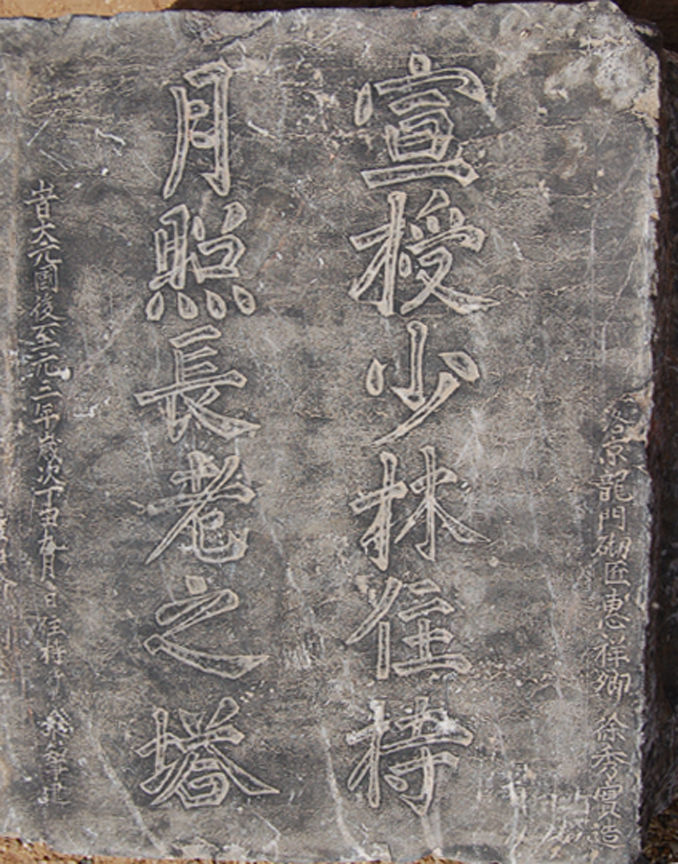 京龍門砌匠惠祥卿徐秀實造
宣授少林住持
月照長老之塔
岢大元國後至元二年歲次丁丑九月 日住持